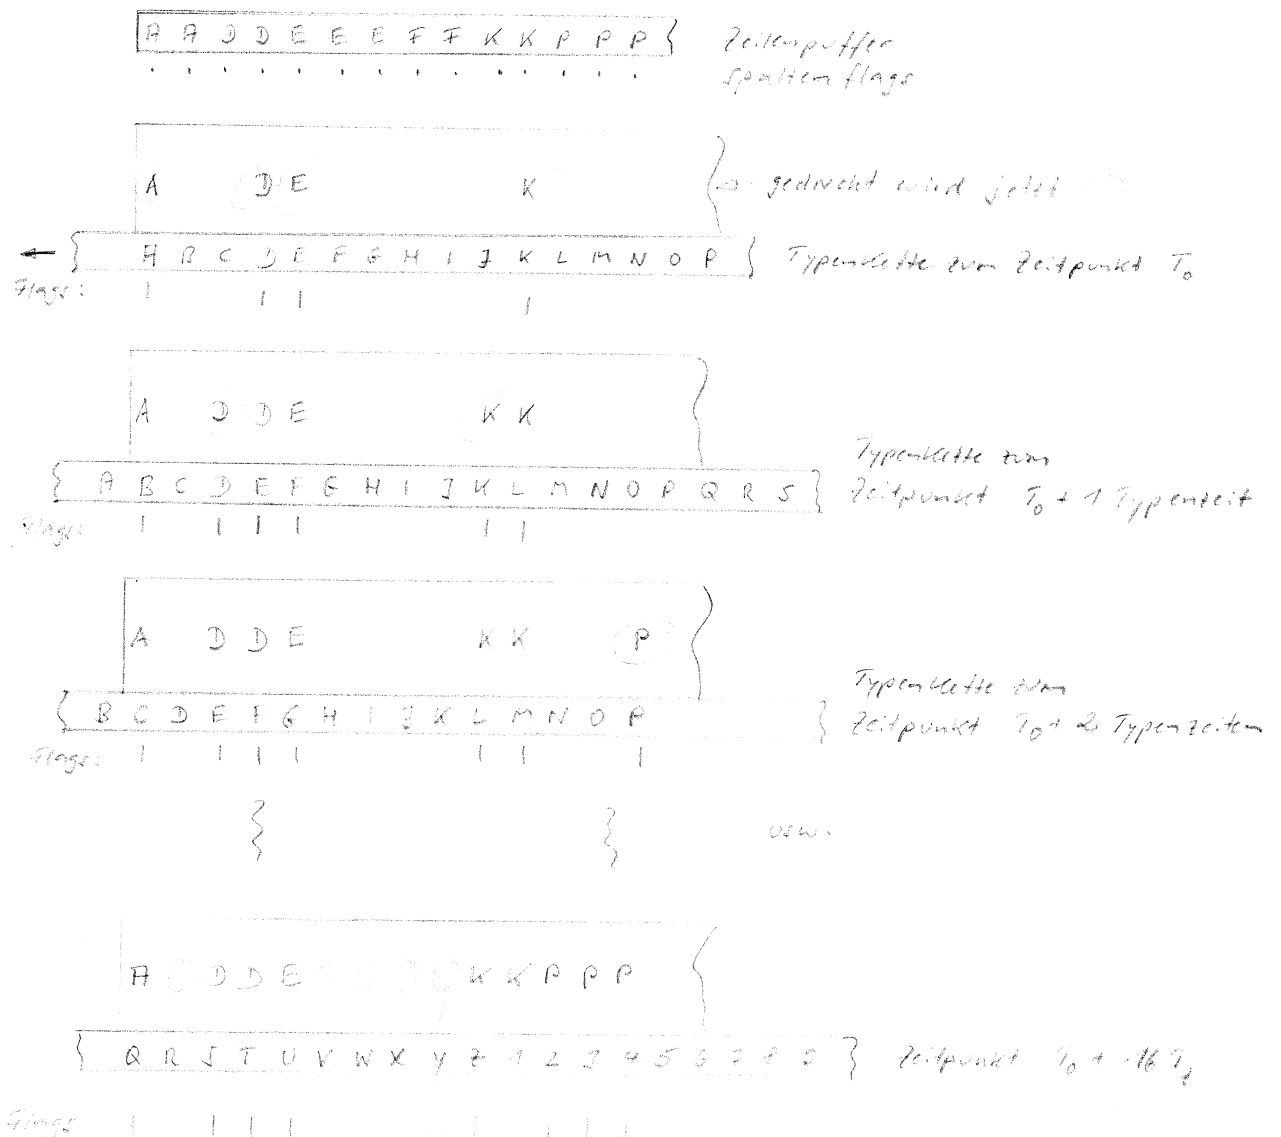 A A D D E E E F F K K P P P Zeilenpuffer
Spaltenflags
A D E K gedruckt wird jetzt
A B C D E F G H I J K L M N O P Typenkette zum Zeitpunkt T₀
Flags:
A D D E K K
Typenkette zum
A B C D E F G H I J K L M N O P Q R S Zeitpunkt T₀ + 1 Typenzeit
Flags:
A D D E K K P
Typenkette zum
B C D E F G H I J K L M N O P Zeitpunkt T₀ + 2 Typenzeiten
Flags:
usw.
A D D E K K P P P
Q R S T U V W X Y Z 1 2 3 4 5 6 7 8 9 Zeitpunkt T₀ + 16 T
Flags